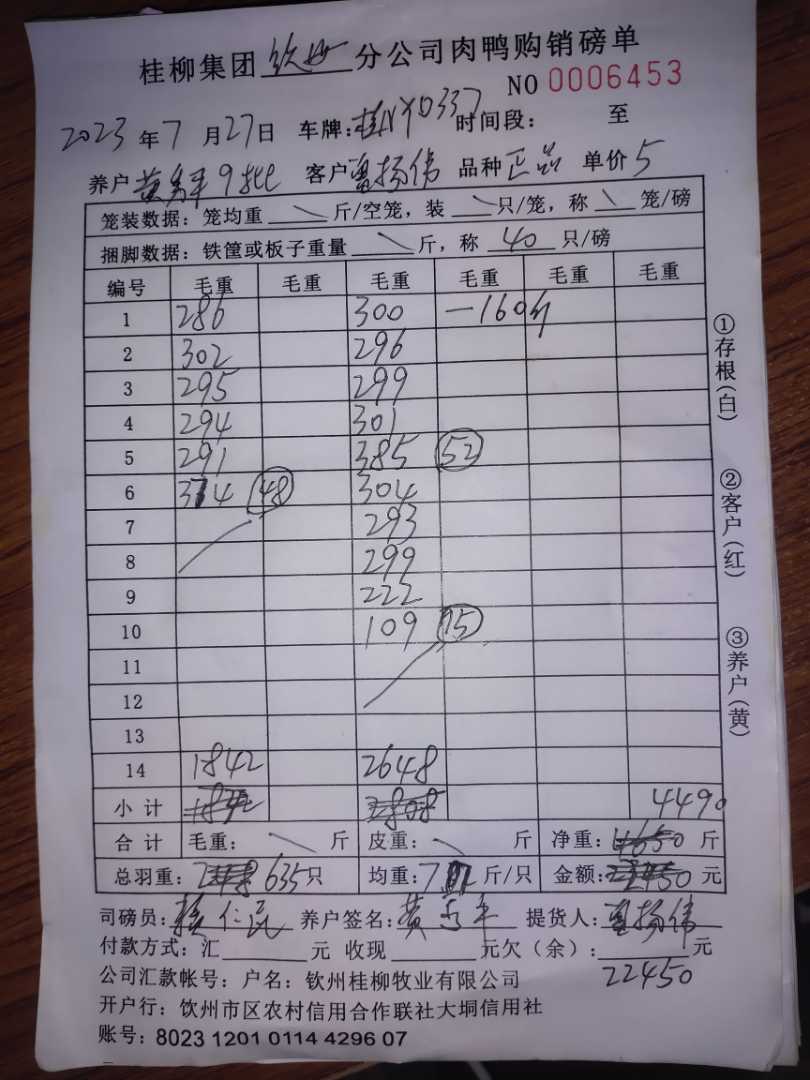 桂柳集团 钦州 分公司肉鸭购销磅单
NO 0006453
2023 年 7 月 27 日 车牌: 时间段: 至
养户 9批 客户 扬伟 品种 正品 单价 5
笼装数据: 笼均重 斤/空笼, 装 只/笼, 称 笼/磅
捆脚数据: 铁筐或板子重量 斤, 称 40 只/磅
编号 毛重 毛重 毛重 毛重 毛重 毛重
1 286 300 -160斤
2 302 296
3 295 299
4 294 301
5 291 385 52
6 374 48 304
7 293
8 299
9 222
10 109 15
11
12
13
14 1842 2648
小计 4490
合计 毛重: 斤 皮重: 斤 净重: 斤
总羽重: 635只 均重: 7 斤/只 金额: 元
司磅员: 仁民 养户签名: 提货人: 扬伟
付款方式: 汇 元 收现 元欠(余): 元
22450
公司汇款帐号: 户名: 钦州桂柳牧业有限公司
开户行: 钦州市区农村信用合作联社大垌信用社
账号: 8023 1201 0114 4296 07
①存根(白)
②客户(红)
③养户(黄)